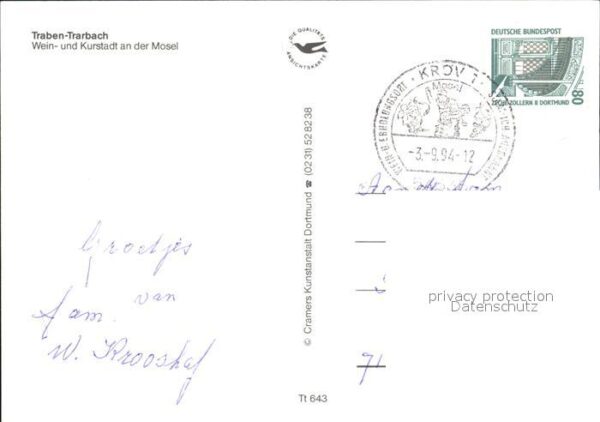 Traben-Trarbach
Wein- und Kurstadt an der Mosel
DIE QUALITÄTS
ANSICHTSKARTE
DEUTSCHE BUNDESPOST
80
ZECHE ZOLLERN II DORTMUND
KRÖV 1
Mosel
WEIN- U. ERHOLUNGSORT
-3.-9.94-12
© Cramers Kunstanstalt Dortmund ☎ (0231) 528238
Groetjes
van
fam.
W. Krooshof
privacy protection
Datenschutz
Tt 643